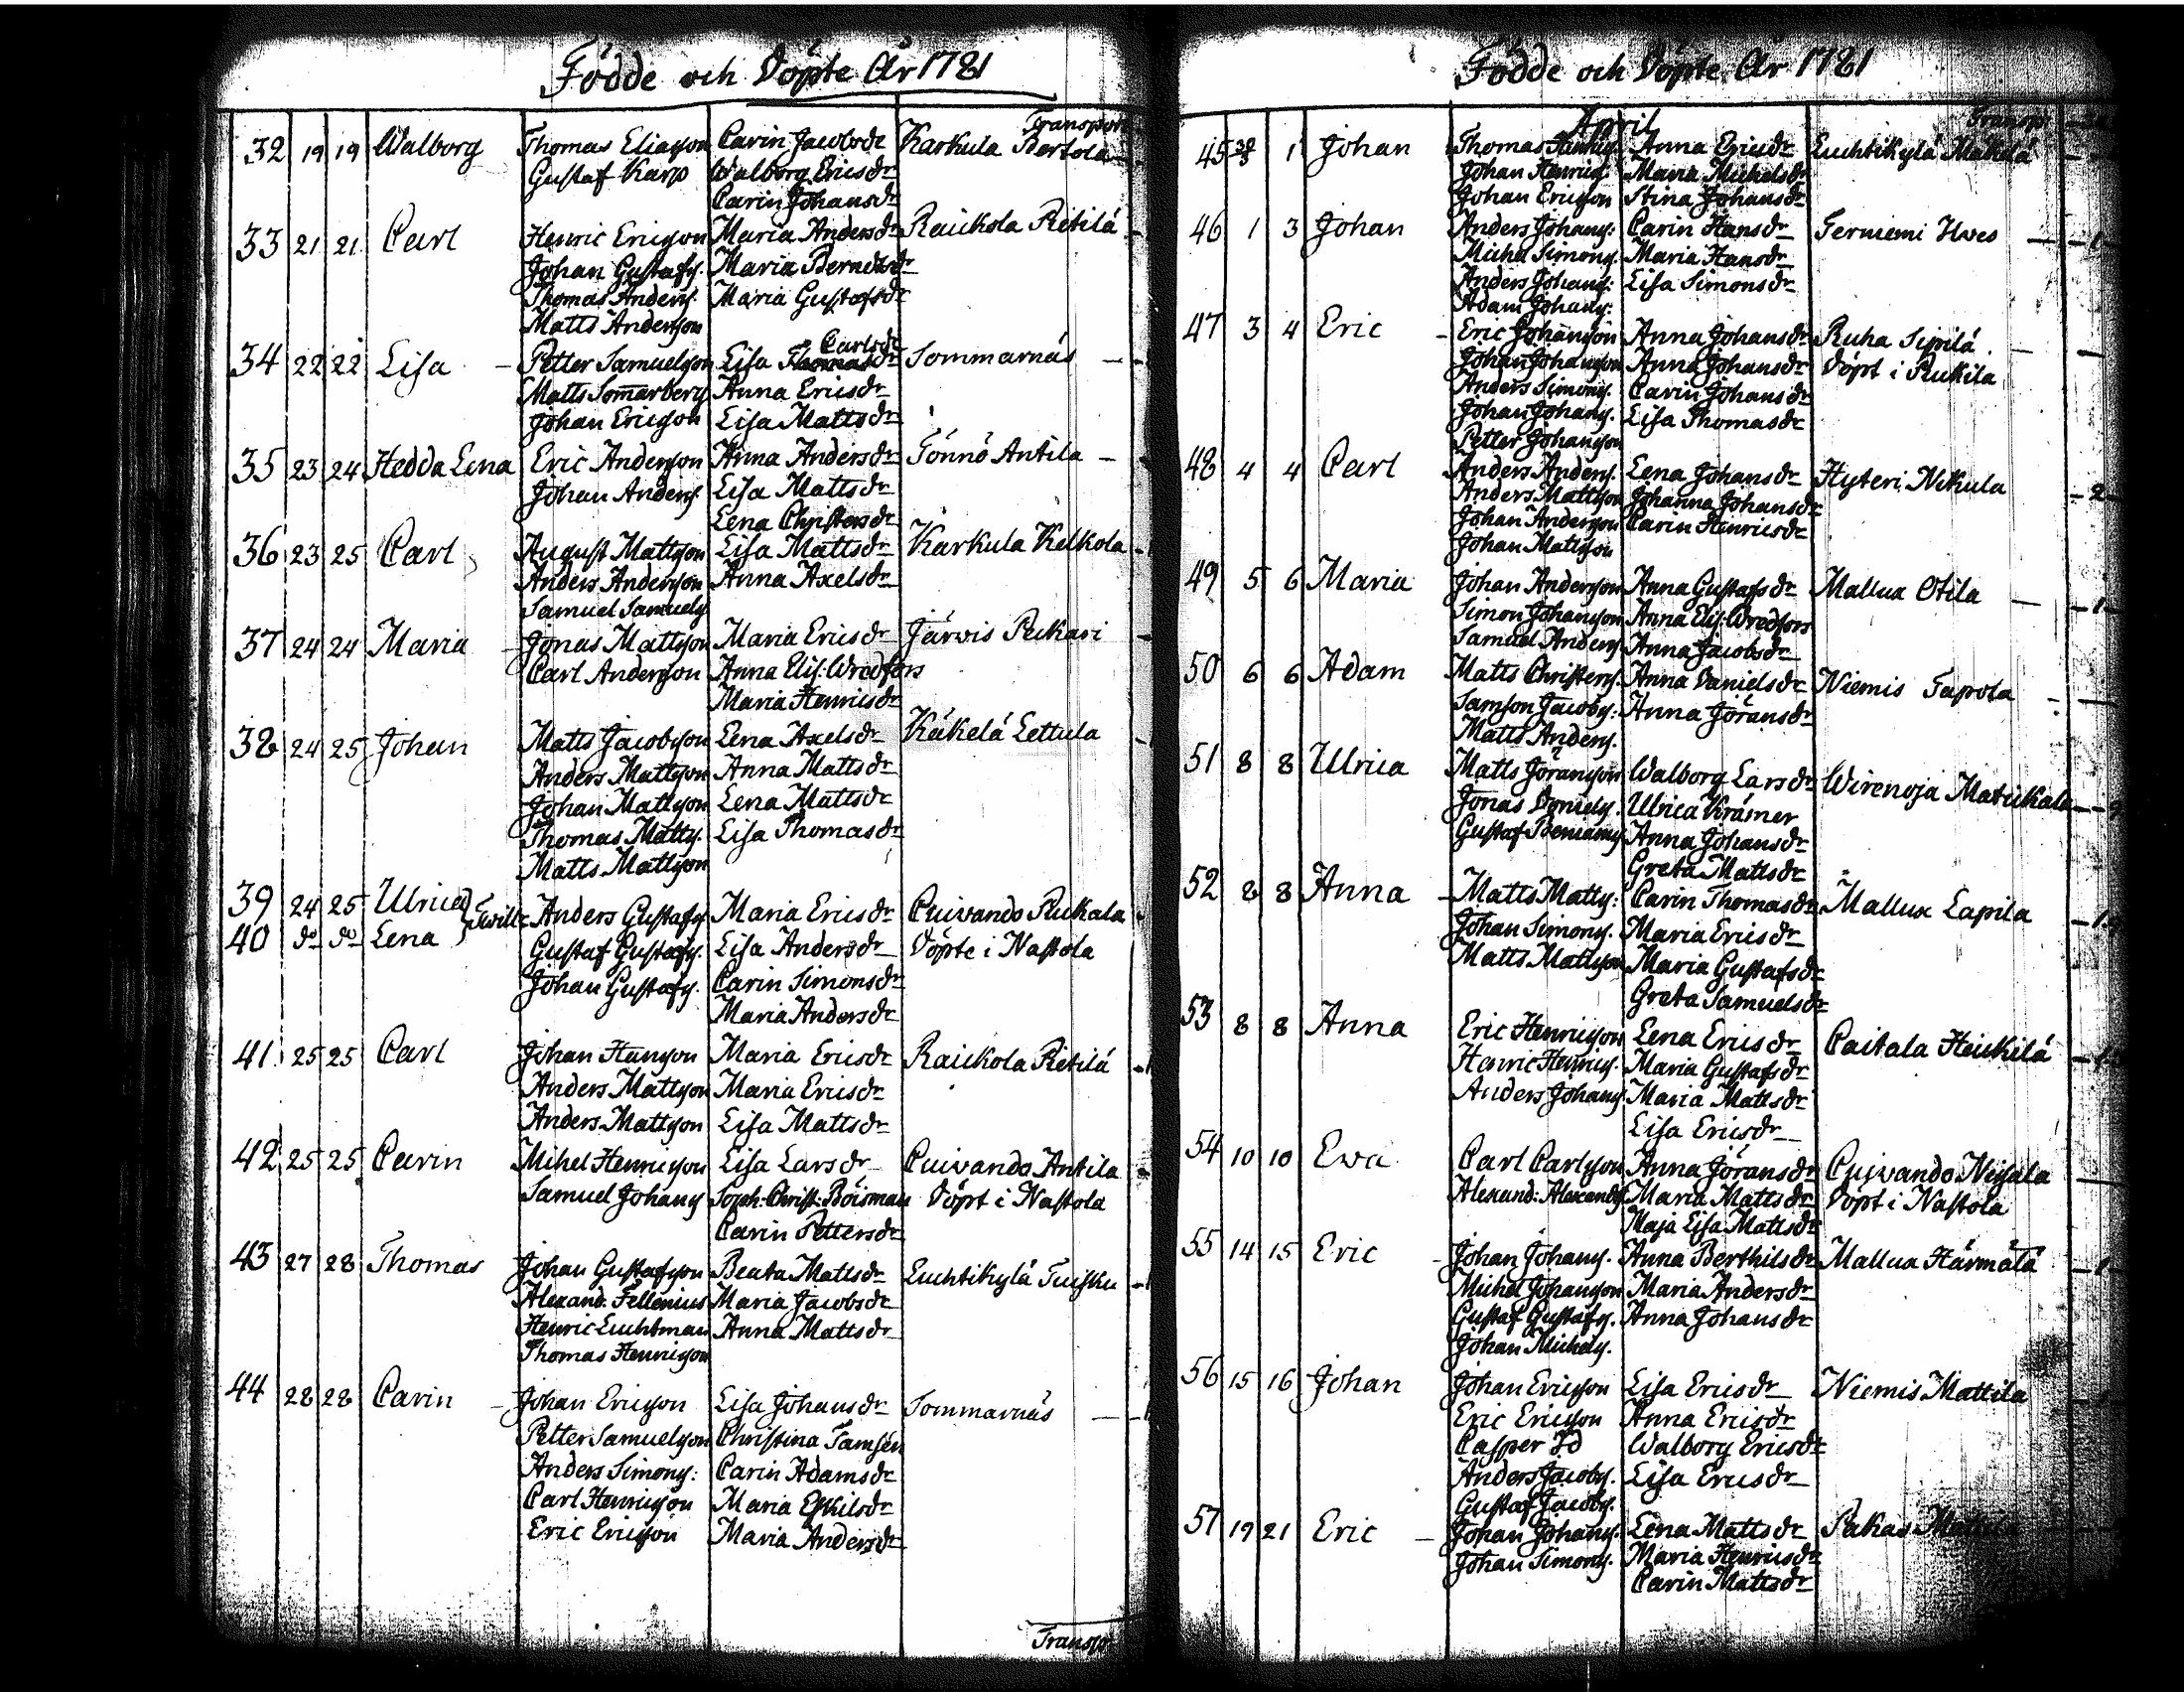 Födde och Döpte År 1781
Transport
32 19 19 Walborg Thomas Eliason Carin Jacobsdr Karkula Bertola
Gustaf Karp Walborg Ericsdr
Carin Johansdr
33 21 21 Carl Henric Ericsson Maria Andersdr Raickola Retilä
Johan Gustafs. Maria Berndtsdr
Thomas Anders. Maria Gustafsdr
Matts Andersson
Carlsdr
34 22 22 Lisa Petter Samuelsson Lisa Thomasdr Sommarnäs
Matts Som̅arberg Anna Ericsdr
Johan Ericsson Lisa Mattsdr
35 23 24 Hedda Lena Eric Andersson Anna Andersdr Tönnö Antila
Johan Anders. Lisa Mattsdr
Lena Christersdr
36 23 25 Carl August Mattsson Lisa Mattsdr Karkula Kelkola
Anders Andersson Anna Axelsdr
Samuel Samuels
37 24 24 Maria Jonas Mattsson Maria Ericsdr Järwis Peckari
Carl Andersson Anna Elis: Wredfors
Maria Henricsdr
38 24 25 Johan Matts Jacobsson Lena Axelsdr Käkelä Lettula
Anders Mattsson Anna Mattsdr
Johan Mattsson Lena Mattsdr
Thomas Matts. Lisa Thomasdr
Matts Mattsson
39 24 25 Ulrica Anders Gustafs Maria Ericsdr Cuivando Ruckala
40 do do Lena Twill: Gustaf Gustafs. Lisa Andersdr Döpte i Nastola
Johan Gustafs. Carin Simonsdr
Maria Andersdr
41 25 25 Carl Johan Hansson Maria Ericsdr Raickola Retilä
Anders Mattsson Maria Ericsdr
Anders Mattsson Lisa Mattsdr
42 25 25 Carin Mihel Henricsson Lisa Larsdr Cuivando Antila
Samuel Johans Soph: Christ: Boisman Döpt i Nastola
Carin Pettersdr
43 27 28 Thomas Johan Gustafsson Beata Mattsdr Luchtikylä Tuisku
Alexand: Fellenius Maria Jacobsdr
Henric Luchtman Anna Mattsdr
Thomas Henricsson
44 28 28 Carin Johan Ericsson Lisa Johansdr Sommarnäs
Petter Samuelsson Christina Tamsén
Anders Simons: Carin Adamsdr
Carl Henricsson Maria Eskilsdr
Eric Ericsson Maria Andersdr
Transp
Födde och Döpte År 1781
April Transp.
45 1 Johan Thomas Henrics Anna Ericsdr Luchtikylä Mäkelä
Johan Henrics Maria Michelsdr
Johan Ericsson Stina Johansdr
46 1 3 Johan Anders Johans: Carin Hansdr Terriemi Uvos
Michel Simons. Maria Hansdr
Anders Johans: Lisa Simonsdr
Adam Johans.
47 3 4 Eric Eric Johansson Anna Johansdr Ruha Sipilä
Johan Johansson Anna Johansdr Döpt i Ruckila
Anders Simons. Carin Johansdr
Johan Johans. Lisa Thomasdr
Petter Johansson
48 4 4 Carl Anders Anders. Lena Johansdr Hyteri Nikula 2
Anders Mattsson Johanna Johansdr
Johan Andersson Carin Henricsdr
Johan Mattsson
49 5 6 Maria Johan Andersson Anna Gustafsdr Mallux Otila 1
Simon Johansson Anna Elis: Wredfors
Samuel Anders Anna Jacobsdr
50 6 6 Adam Matts Christers. Anna Danielsdr Niemis Tapola
Samson Jacobs: Anna Jöransdr
Matts Anders.
51 8 8 Ulrica Matts Jöransson Walborg Larsdr Wirenoja Matickala
Jonas Daniels. Ulrica Krämer
Gustaf Beniams. Anna Johansdr
Greta Mattsdr
52 8 8 Anna Matts Matts: Carin Thomasdr Mallux Lapila 1
Johan Simons. Maria Ericsdr
Matts Mattsson Maria Gustafsdr
Greta Samuelsdr
53 8 8 Anna Eric Henricsson Lena Ericsdr Paitala Heickilä
Henric Henrics. Maria Gustafsdr
Anders Johans. Maria Mattsdr
Lisa Ericsdr
54 10 10 Ewa Carl Carlsson Anna Jöransdr Cuivando Nigala
Alexand: Alexands Maria Mattsdr Döpt i Nastola
Maja Lisa Mattsdr
55 14 15 Eric Johan Johans. Anna Berthilsdr Mallux Härmälä 1
Michel Johansson Maria Andersdr
Gustaf Gustafs. Anna Johansdr
Johan Michels.
56 15 16 Johan Johan Ericsson Lisa Ericsdr Niemis Mattila
Eric Ericsson Anna Ericsdr
Casper Id Walborg Ericsdr
Anders Jacobs. Lisa Ericsdr
Gustaf Jacobs.
57 19 21 Eric Johan Johans. Lena Mattsdr Pakas Mattila
Johan Simons. Maria Henricsdr
Carin Mattsdr